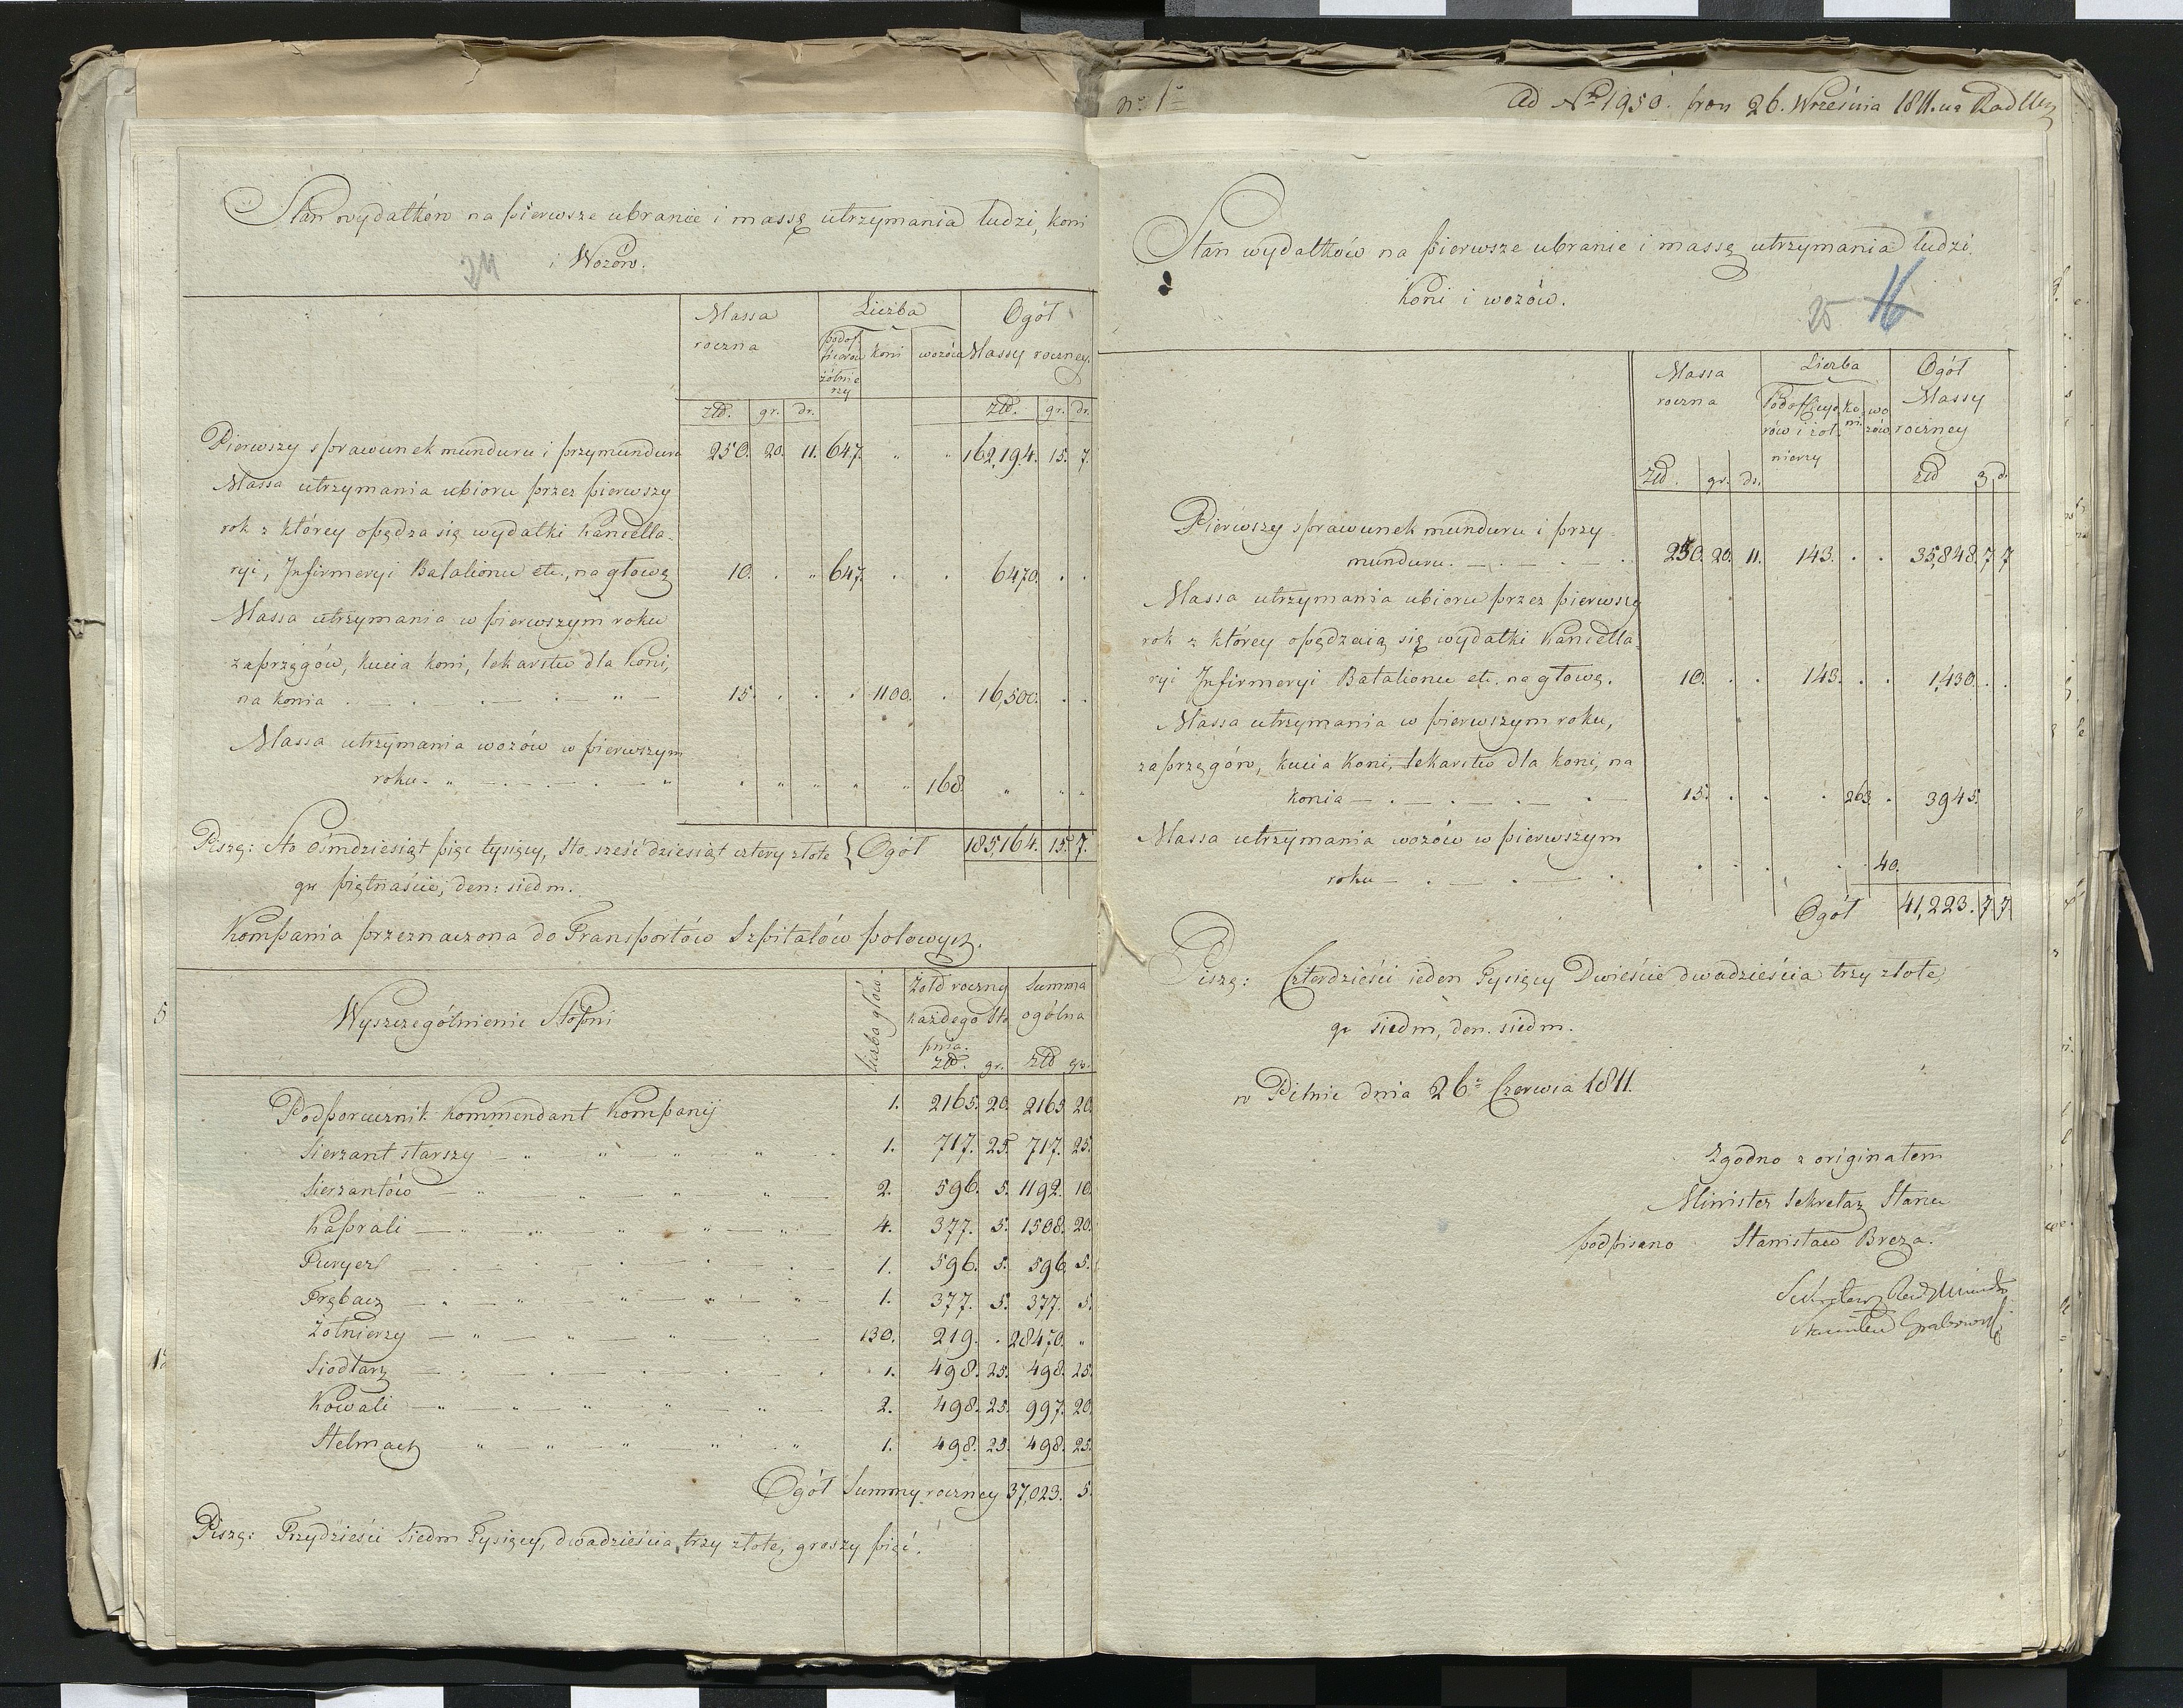 Stan wydatków na pierwsze ubranie i massę utrzymania ludzi, koni
i Wozów.
24
Massa roczna Liczba Ogół Massy roczney.
podof ficerów żółnie rzy koni wozów
złł. gr. dr. złł. gr. dr.
Pierwszy sprawunek munduru i przymunduru 250. 20. 11. 647. " " 162,194. 15. 7.
Massa utrzymania ubioru przez pierwszy
rok z którey opędza się wydatki Kancella-
ryi, Infirmeryi Batalionu etc., na głowę 10. . " 647. . . 6470. . .
Massa utrzymania w pierwszym roku
zaprzęgów, kucia koni, lekarstw dla koni,
na konia . — . — . — . — " — 15. . . . 1100. . 16,500. . .
Massa utrzymania wozów w pierwszym
roku. " — . — . — . — " . " " " " 168. " " "
Piszę: Sto Ośmdziesiąt pięc tysięcy, Sto sześćdziesiąt cztery złote { Ogół 185,164. 15. 7.
gr piętnaście, den: siedm.
Kompania przeznaczona do Transportów Szpitalów polowych.
Wyszczególnienie Stopni liczba głów. Żołd roczny każdego Sto pnia. Summa ogólna
złł. gr. złł gr.
Podporucznik Kommendant Kompanij 1. 2165. 20. 2165 20.
Sierzant starszy — " — " — " — " — . 1. 717. 25. 717. 25.
Sierzantów — " — " — " — " — 2. 596. 5. 1192. 10.
Kaprali — " — " — " — " — " — 4. 377. 5. 1508. 20.
Furyer — . — . — . — . — 1. 596. 5. 596. 5.
Trębacz — " — " — " — " — " — 1. 377. 5. 377. 5.
Żołnierzy — " — " — " — " — 130. 219. . 28470. "
Siodlarz — . — . — . — . — . 1. 498. 25. 498. 25.
Kowali — " — " — " — " — " — 2. 498. 25. 997. 20.
Stelmach — " — " — " — " — " 1. 498. 25. 498. 25.
Ogół Summy roczney 37,023. 5.
Piszę: Trzydzieści Siedm Tysięcy, dwadzieścia trzy złote, groszy pięć.
5
12
No 1o
Ad No 1950. 26. Września 1811.
Stan wydatków na pierwsze ubranie i massę utrzymania ludzi.
Koni i wozów.
25 16
Massa roczna Liczba Ogół Massy roczney
Podofficye rów i żoł nierzy ko ni wo zów
złł. gr. dr. złł g d.
Pierwszy sprawunek munduru i przy-
munduru. — . — . — . — . 250. 20. 11. 143. . . 35,848. 7 7
Massa utrzymania ubioru przez pierwszy
rok z którey opędzaią się wydatki Kancella-
ryi Infirmeryi Batalionu etc. na głowę. 10. . . 143. . . 1,430. . .
Massa utrzymania w pierwszym roku,
zaprzęgów, kucia koni, lekarstw dla koni, na
konia — . — . — . — . — 15. . . . 263. . 3945.
Massa utrzymania wozów w pierwszym
roku — . — . — . — . . . . . . 40.
Ogół 41,223. 7 7
Piszę: Czterdzieści ieden Tysięcy Dwieście dwadzieścia trzy złote,
gr siedm, den. siedm.
w Pilnie dnia 26o Czerwca 1811.
Zgodno z originałem
Minister Sekretarz Stanu
podpisano Stanisław Breza.
Sekretarz Rady Ministrów
Grabowski